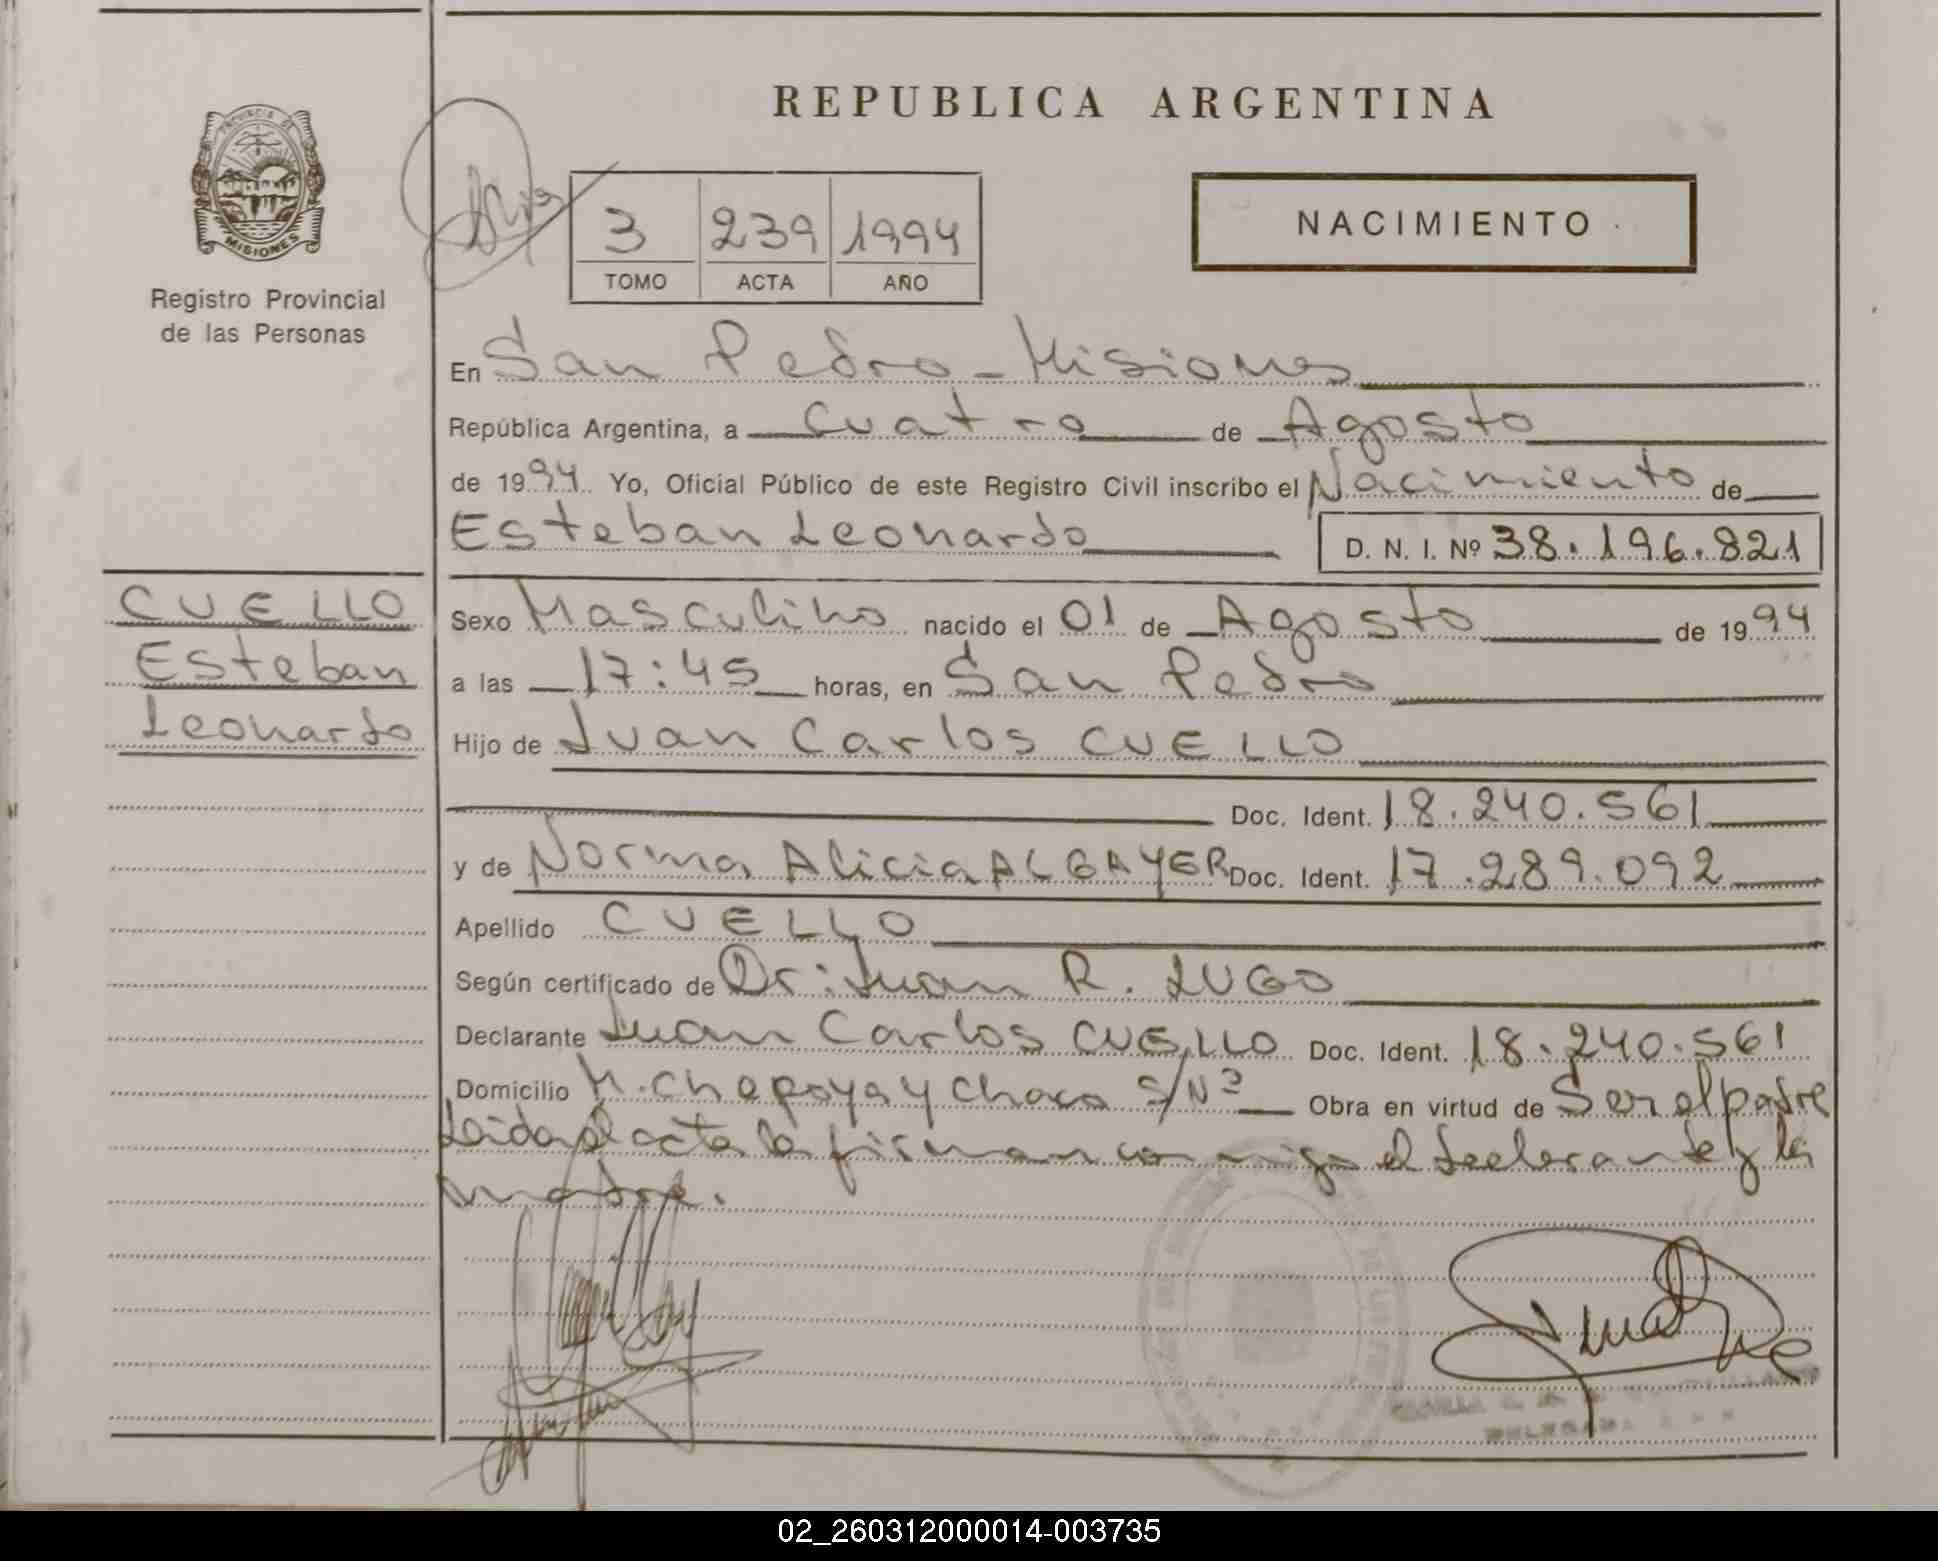 REPUBLICA ARGENTINA
PROVINCIA DE
MISIONES
Registro Provincial
de las Personas
3 239 1994
TOMO ACTA AÑO
NACIMIENTO
En San Pedro - Misiones
República Argentina, a cuatro de Agosto
de 1994 Yo, Oficial Público de este Registro Civil inscribo el Nacimiento de
Esteban Leonardo D. N. I. Nº 38.196.821
CUELLO
Esteban
Leonardo
Sexo Masculino nacido el 01 de Agosto de 1994
a las 17:45 horas, en San Pedro
Hijo de Juan Carlos CUELLO
Doc. Ident. 18.240.561
y de Norma Alicia ALGAYER Doc. Ident. 17.289.092
Apellido CUELLO
Según certificado de Dr: Juan R. LUGO
Declarante Juan Carlos CUELLO Doc. Ident. 18.240.561
Domicilio M. Chepoya y Chaco S/Nº Obra en virtud de Ser el padre
Leida el acta la firman conmigo el declarante y la
madre.
02_260312000014-003735